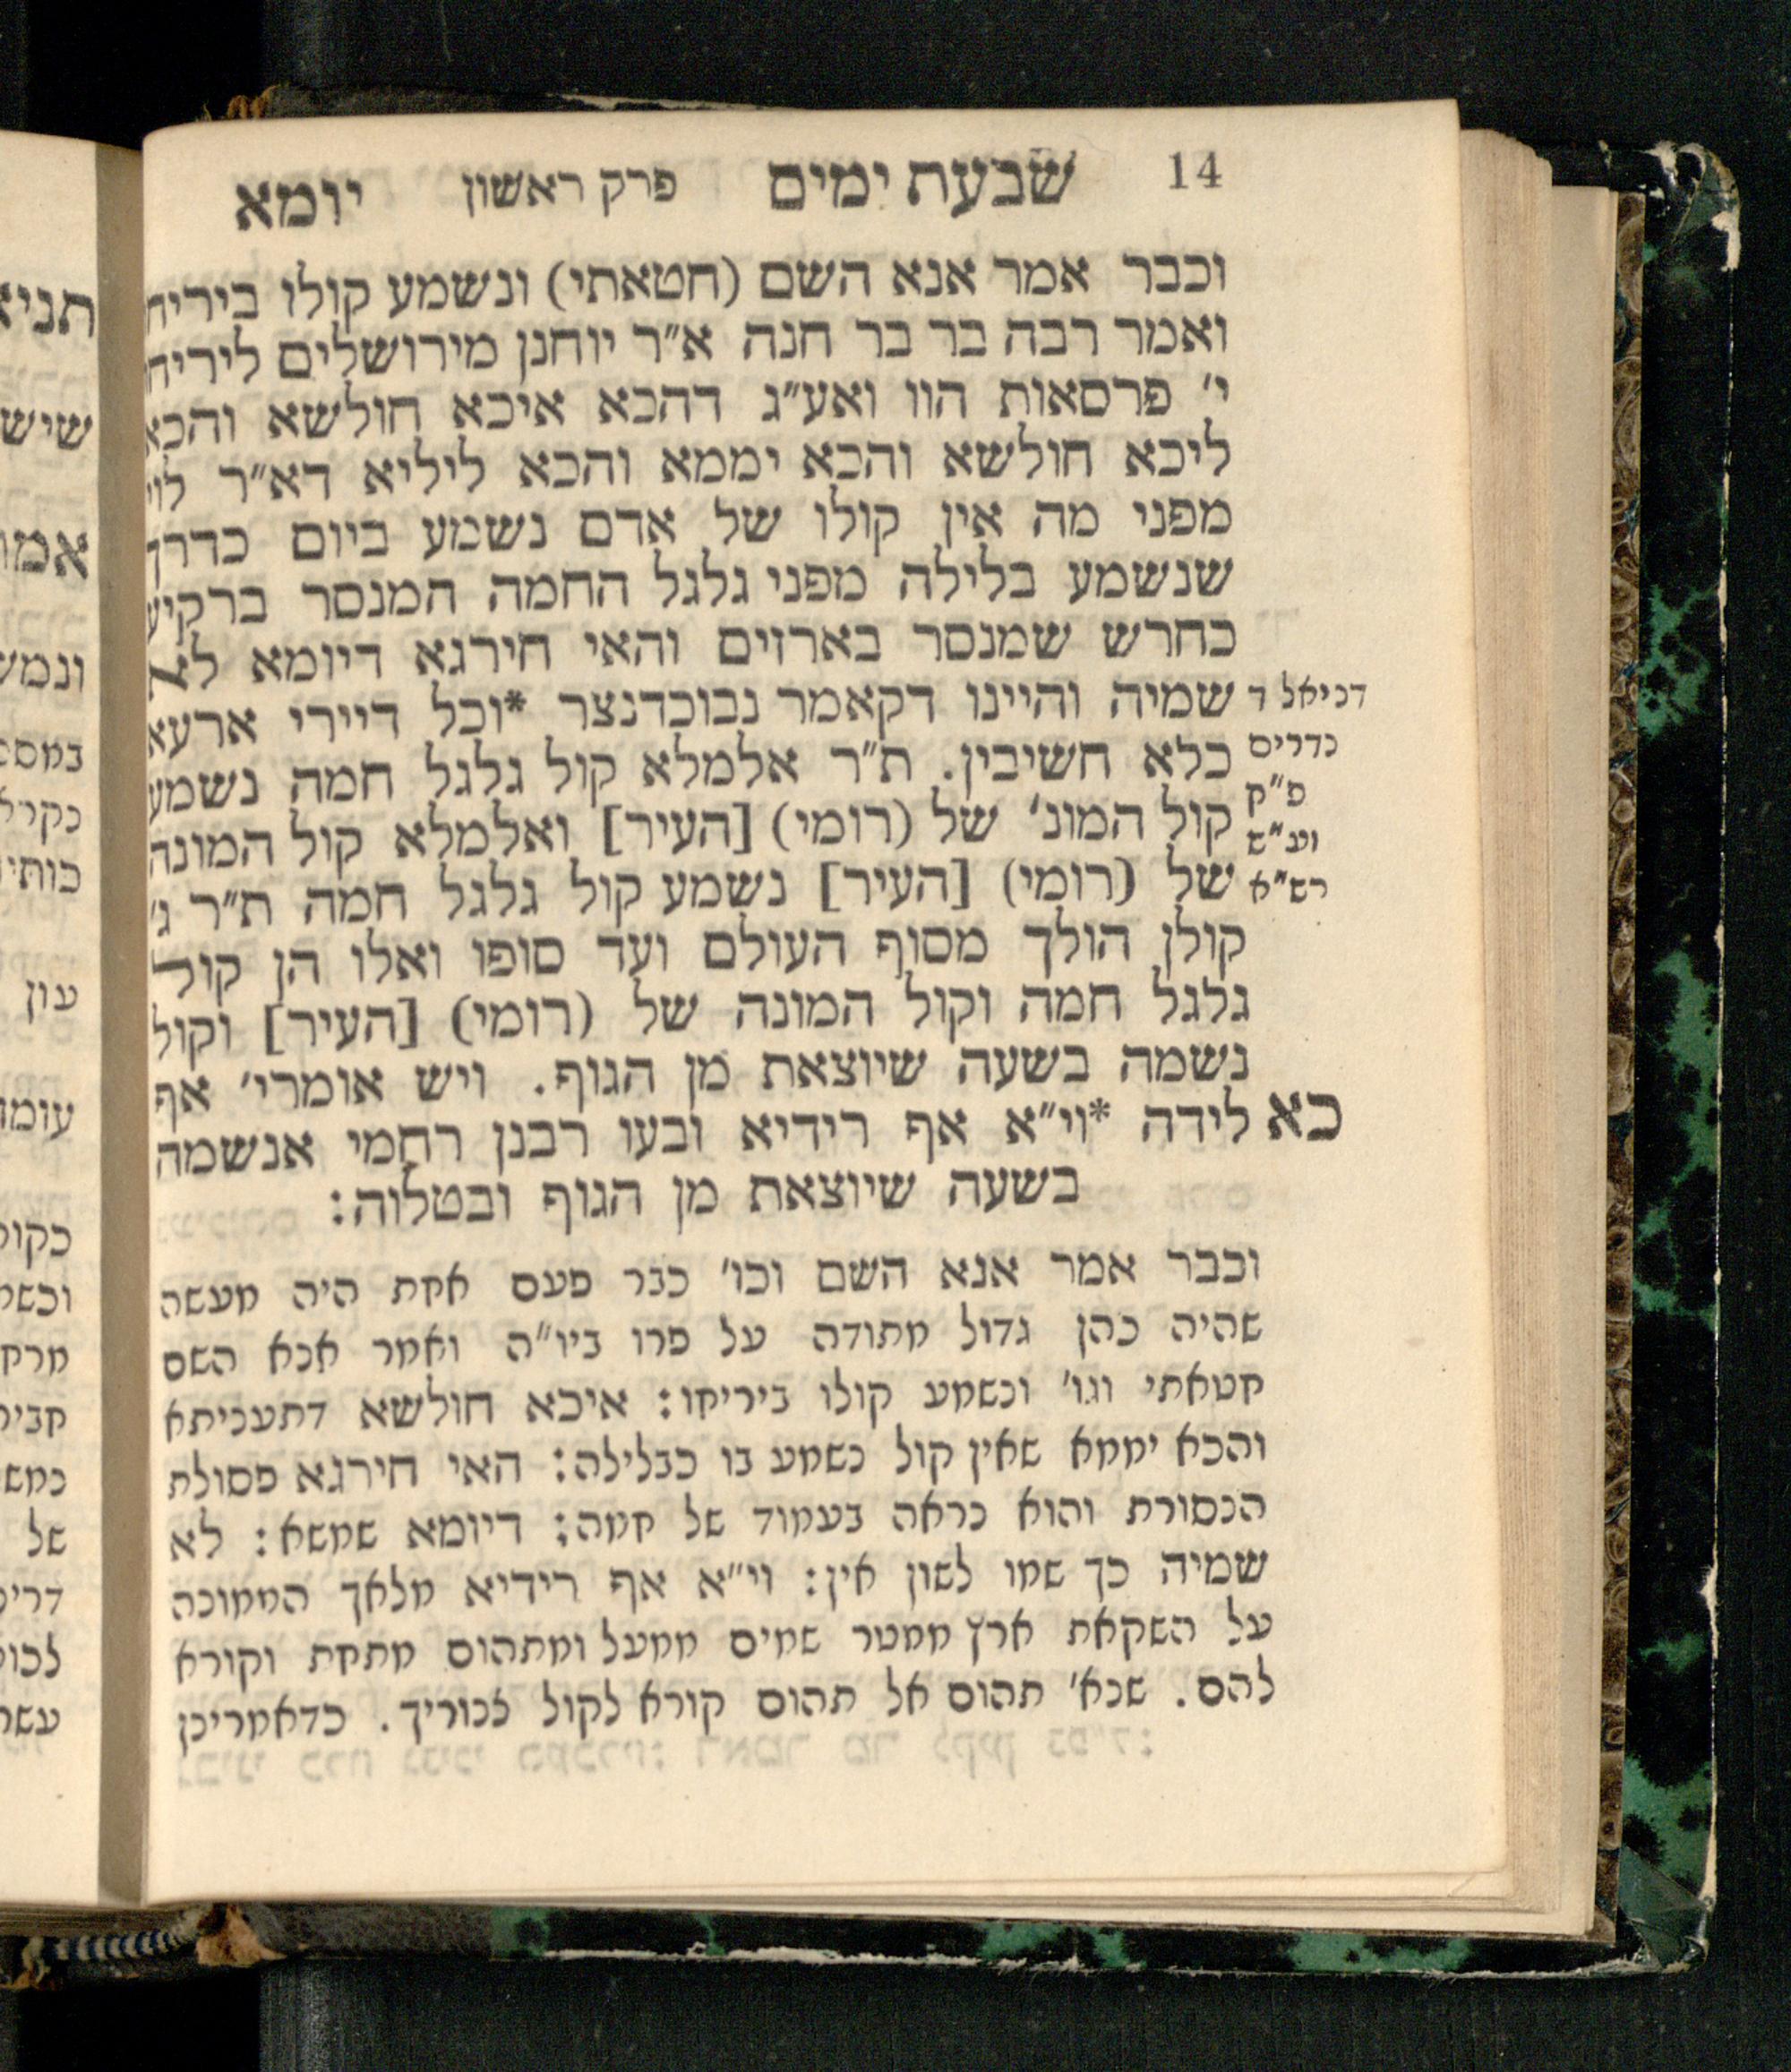 14 שבעת ימים פרק ראשון יומא
וכבר אמר אנא השם (חטאתי) ונשמע קולו ביריח
ואמר רבה בר בר חנה א״ר יוחנן מירושלים ליריח
י׳ פרסאות הוו ואע״ג דהכא איכא חולשא והכא
ליכא חולשא והכא יממא והכא ליליא דא״ר לוי
מפני מה אין קולו של אדם נשמע ביום כדרך
שנשמע בלילה מפני גלגל החמה המנסר ברקיע
כחרש שמנסר בארזים והאי חירגא דיומא לא
דניאל ד שמיה והיינו דקאמר נבוכדנצר *וכל דיירי ארעא
נדרים כלא חשיבין. ת״ר אלמלא קול גלגל חמה נשמע
פ״ק קול המונ׳ של (רומי) [העיר] ואלמלא קול המונה
וע״ש
רש״א של (רומי) [העיר] נשמע קול גלגל חמה ת״ר ג׳
קולן הולך מסוף העולם ועד סופו ואלו הן קול
גלגל חמה וקול המונה של (רומי) [העיר] וקול
נשמה בשעה שיוצאת מן הגוף. ויש אומרי׳ אף
כא לידה *וי״א אף רידיא ובעו רבנן רחמי אנשמה
בשעה שיוצאת מן הגוף ובטלוה:
וכבר אמר אנא השם וכו׳ כבר פעם אחת היה מעשה
שהיה כהן גדול מתודה על פרו ביו״ה ואמר אנא השם
חטאתי וגו׳ ונשמע קולו ביריחו: איכא חולשא דתעניתא
והכא יממא שאין קול נשמע בו כבלילה: האי חירגא פסולת
הנסורת והוא נראה בעמוד של חמה: דיומא שמשא: לא
שמיה כך שמו לשון אין: וי״א אף רידיא מלאך הממונה
על השקאת ארץ ממטר שמים ממעל ומתהום מתחת וקורא
להם. שנא׳ תהום אל תהום קורא לקול צנוריך. כדאמרינן